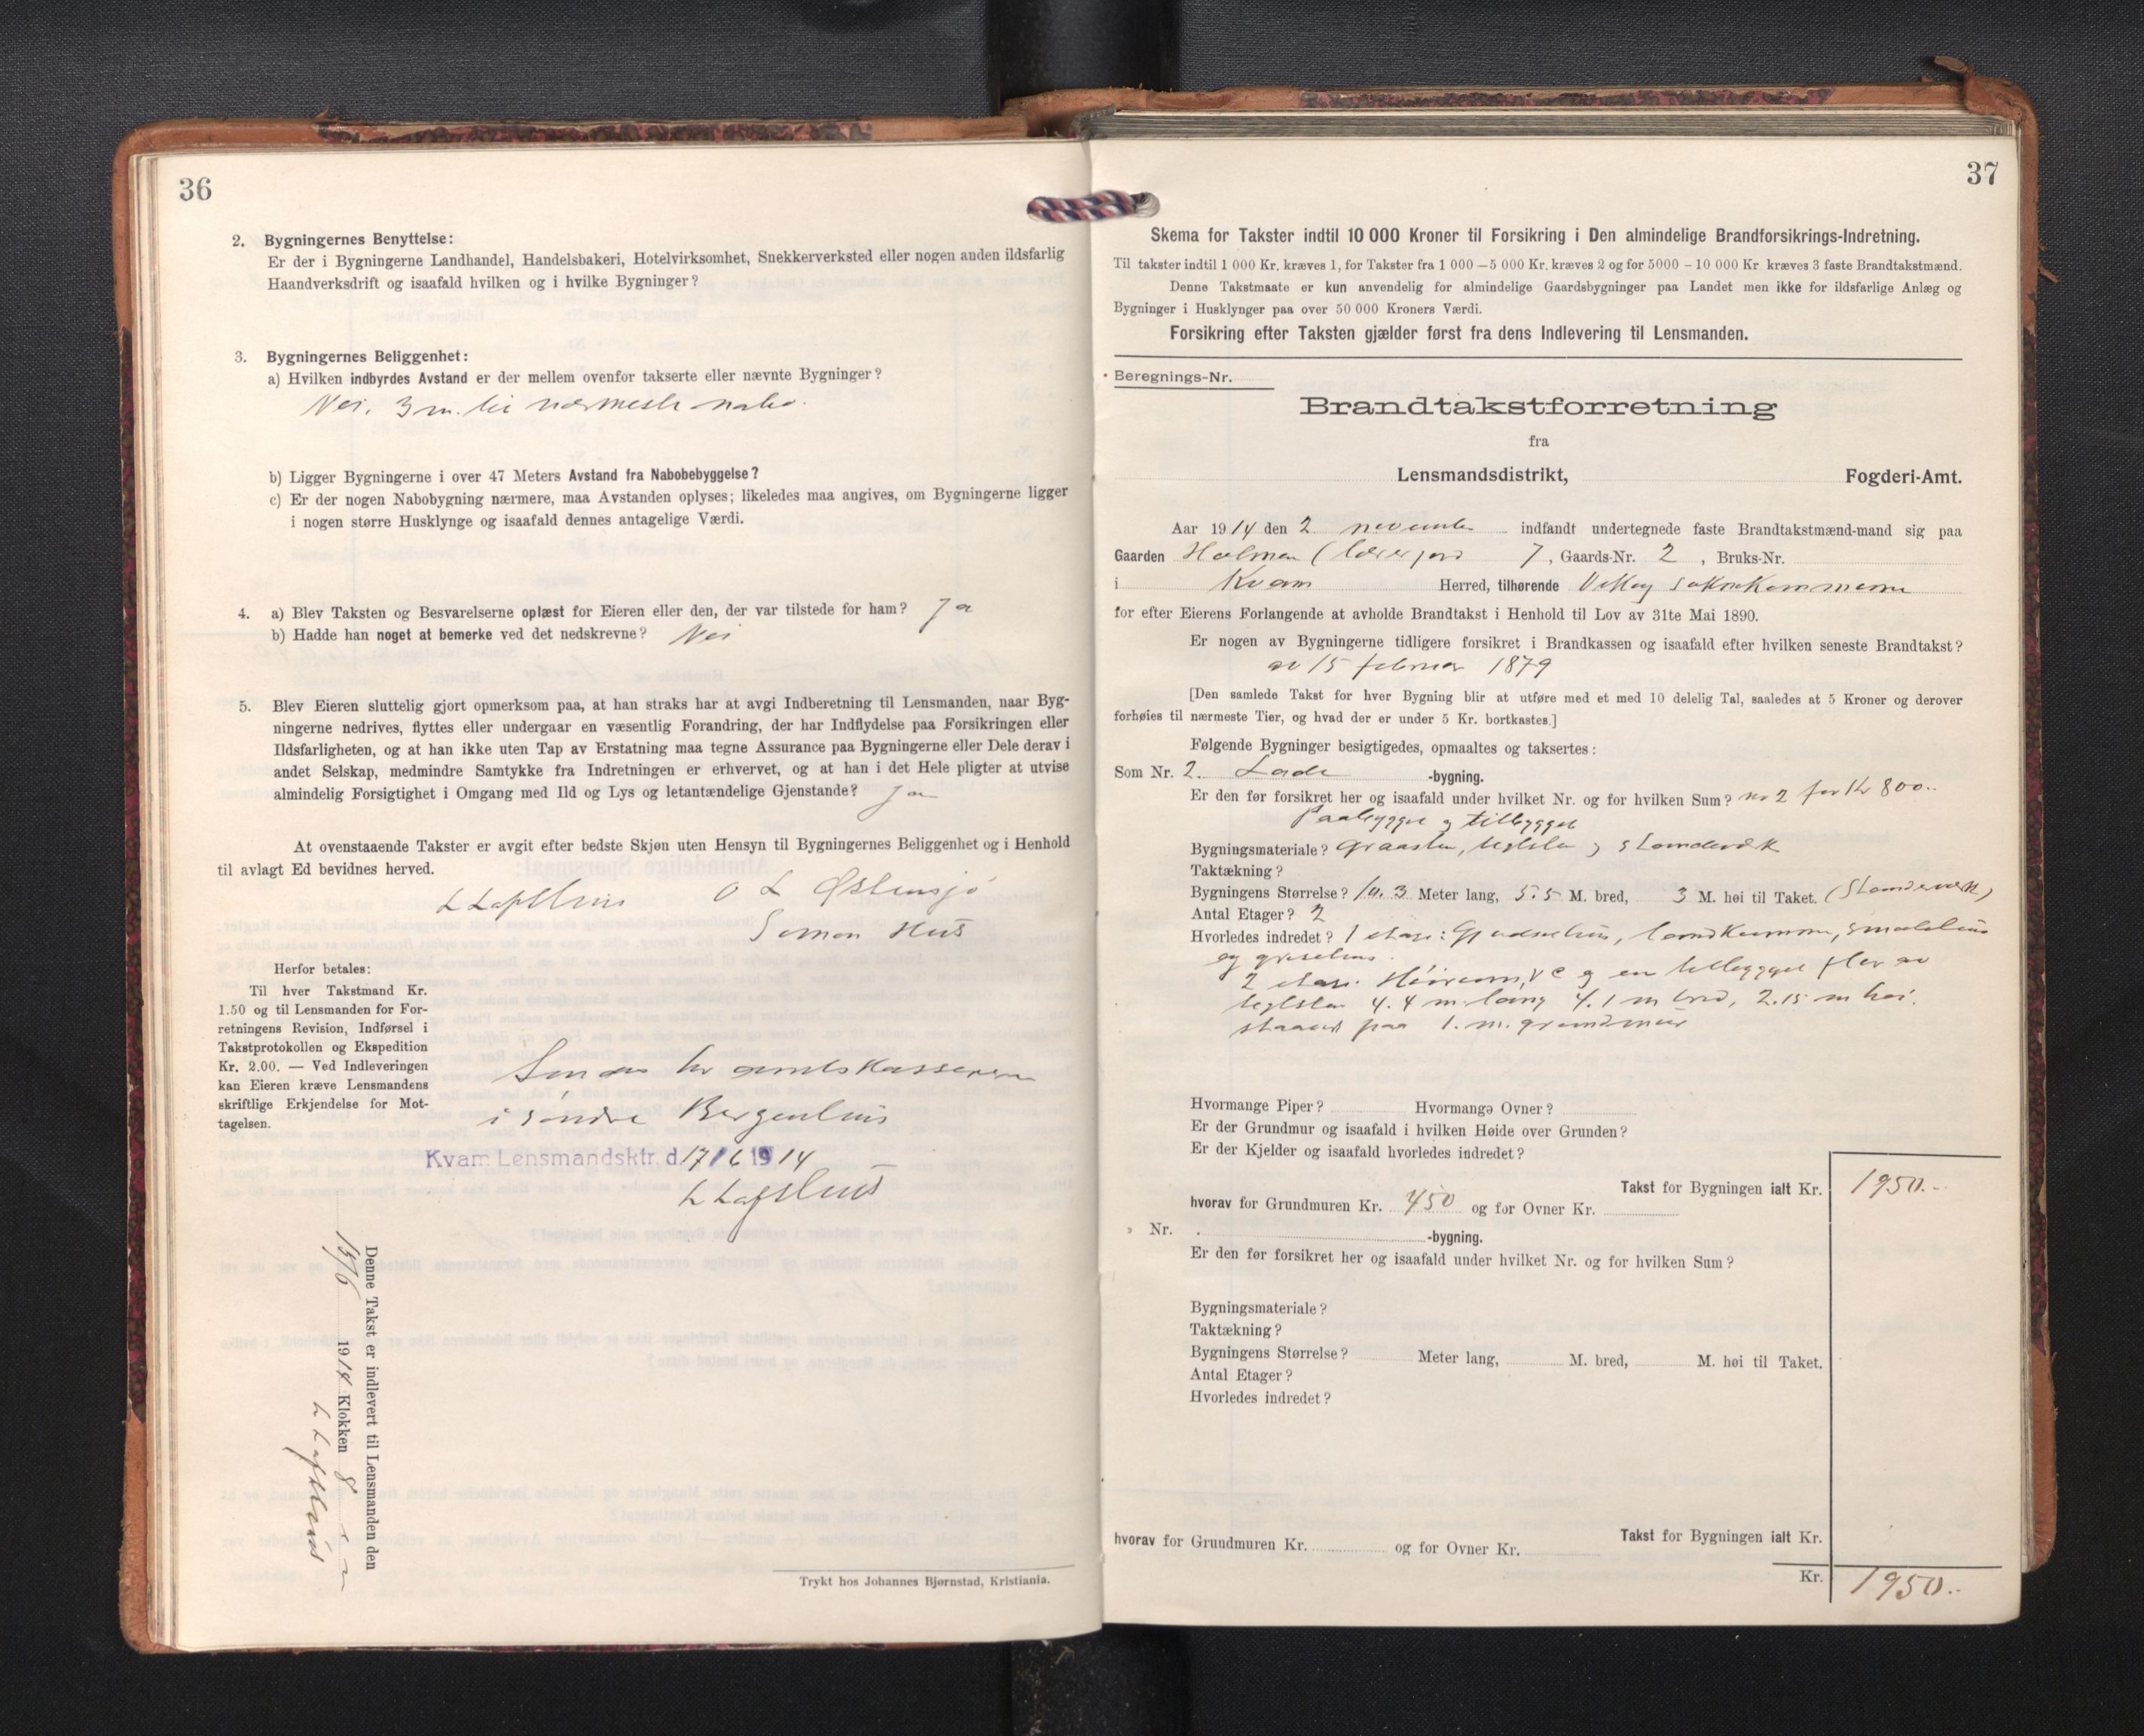 36
2. Bygningernes Benyttelse:
Er der i Bygningerne Landhandel, Handelsbakeri, Hotelvirksomhet, Snekkerverksted eller nogen anden ildsfarlig
Haandverksdrift og isaafald hvilken og i hvilke Bygninger?
3. Bygningernes Beliggenhet:
a) Hvilken indbyrdes Avstand er der mellem ovenfor takserte eller nævnte Bygninger?
Nei. 3 m. til nærmeste nabo.
b) Ligger Bygningerne i over 47 Meters Avstand fra Nabobebyggelse?
c) Er der nogen Nabobygning nærmere, maa Avstanden oplyses; likeledes maa angives, om Bygningerne ligger
i nogen større Husklynge og isaafald dennes antagelige Værdi.
4. a) Blev Taksten og Besvarelserne oplæst for Eieren eller den, der var tilstede for ham? Ja
b) Hadde han noget at bemerke ved det nedskrevne? Nei
5. Blev Eieren sluttelig gjort opmerksom paa, at han straks har at avgi Indberetning til Lensmanden, naar Byg-
ningerne nedrives, flyttes eller undergaar en væsentlig Forandring, der har Indflydelse paa Forsikringen eller
Ildsfarligheten, og at han ikke uten Tap av Erstatning maa tegne Assurance paa Bygningerne eller Dele derav i
andet Selskap, medmindre Samtykke fra Indretningen er erhvervet, og at han i det Hele pligter at utvise
almindelig Forsigtighet i Omgang med Ild og Lys og letantændelige Gjenstande? Ja
At ovenstaaende Takster er avgit efter bedste Skjøn uten Hensyn til Bygningernes Beliggenhet og i Henhold
til avlagt Ed bevidnes herved.
L Lofthus O L Østensjø
Simon Hus
Herfor betales:
Til hver Takstmand Kr.
1.50 og til Lensmanden for For-
retningens Revision, Indførsel i
Takstprotokollen og Ekspedition
Kr. 2.00. — Ved Indleveringen
kan Eieren kræve Lensmandens
skriftlige Erkjendelse for Mot-
tagelsen.
Sendes hr amtskassereren
i Søndre Bergenhus
Kvam Lensmandsktr. d. 17/6 1914
L Lofthus
Denne Takst er indlevert til Lensmanden den
1914 Klokken 8
L Lofthus
Trykt hos Johannes Bjørnstad, Kristiania.
37
Skema for Takster indtil 10 000 Kroner til Forsikring i Den almindelige Brandforsikrings-Indretning.
Til takster indtil 1 000 Kr. kræves 1, for Takster fra 1 000 – 5 000 Kr. kræves 2 og for 5000 – 10 000 Kr kræves 3 faste Brandtakstmænd.
Denne Takstmaate er kun anvendelig for almindelige Gaardsbygninger paa Landet men ikke for ildsfarlige Anlæg og
Bygninger i Husklynger paa over 50 000 Kroners Værdi.
Forsikring efter Taksten gjælder først fra dens Indlevering til Lensmanden.
Beregnings-Nr.
Brandtakstforretning
fra
Lensmandsdistrikt, Fogderi-Amt.
Aar 1914 den 2 november indfandt undertegnede faste Brandtakstmænd-mand sig paa
Gaarden Holmen ( 7, Gaards-Nr. 2, Bruks-Nr.
i Kvam Herred, tilhørende Vikøy
for efter Eierens Forlangende at avholde Brandtakst i Henhold til Lov av 31te Mai 1890.
Er nogen av Bygningerne tidligere forsikret i Brandkassen og isaafald efter hvilken seneste Brandtakst?
av 15 februar 1879
[Den samlede Takst for hver Bygning blir at utføre med et med 10 delelig Tal, saaledes at 5 Kroner og derover
forhøies til nærmeste Tier, og hvad der er under 5 Kr. bortkastes.]
Følgende Bygninger besigtigedes, opmaaltes og taksertes:
Som Nr. 2. Lade -bygning.
Er den før forsikret her og isaafald under hvilket Nr. og for hvilken Sum? no 2 for Kr 800..
Paabygget og tilbygget
Bygningsmateriale? Graasten, teglsten og standerverk
Taktækning?
Bygningens Størrelse? 10.3 Meter lang, 5.5 M. bred, 3 M. høi til Taket. (Standerverk)
Antal Etager? 2
Hvorledes indredet? 1 etage: Gjødselhus, landkummer, smalehus
og grisehus.
2 etage. Høirum, og en tilbygget flor av
teglsten 4.4 m. lang 4.1 m bred, 2.15 m høi.
staaende paa 1. m. grundmur
Hvormange Piper? Hvormange Ovner?
Er der Grundmur og isaafald i hvilken Høide over Grunden?
Er der Kjelder og isaafald hvorledes indredet?
Takst for Bygningen ialt Kr. 1950.-
hvorav for Grundmuren Kr. 450 og for Ovner Kr.
» Nr. -bygning.
Er den før forsikret her og isaafald under hvilket Nr. og for hvilken Sum?
Bygningsmateriale?
Taktækning?
Bygningens Størrelse? Meter lang, M. bred, M. høi til Taket.
Antal Etager?
Hvorledes indredet?
Takst for Bygningen ialt Kr.
hvorav for Grundmuren Kr. og for Ovner Kr.
Kr. 1950..